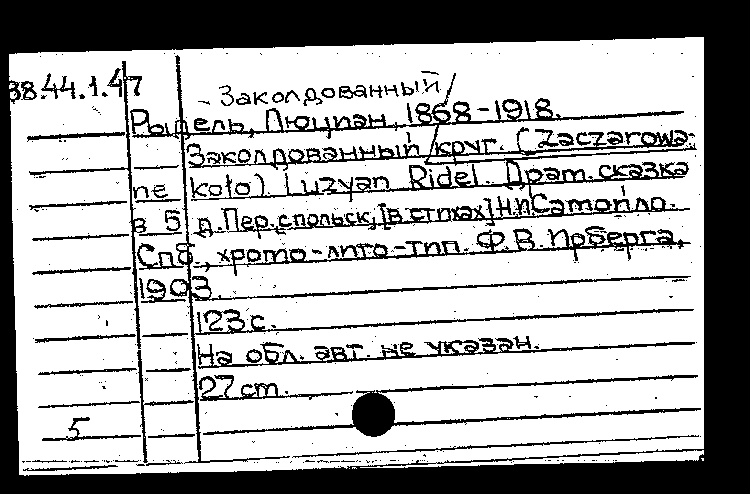 38.44.1.47
- Заколдованный /
Рыдель, Люциан, 1868-1918.
Заколдованный круг. (Zaczarowa-
ne koło). Luzyan Ridel. Драт. сказка
в 5 д. Пер. спольск, [в стихах] Н.И Самойло.
Спб., хромо-лито-тип. Ф.В. Ирберга,
1903.
123 с.
На обл. авт. не указан.
27 cm.
5